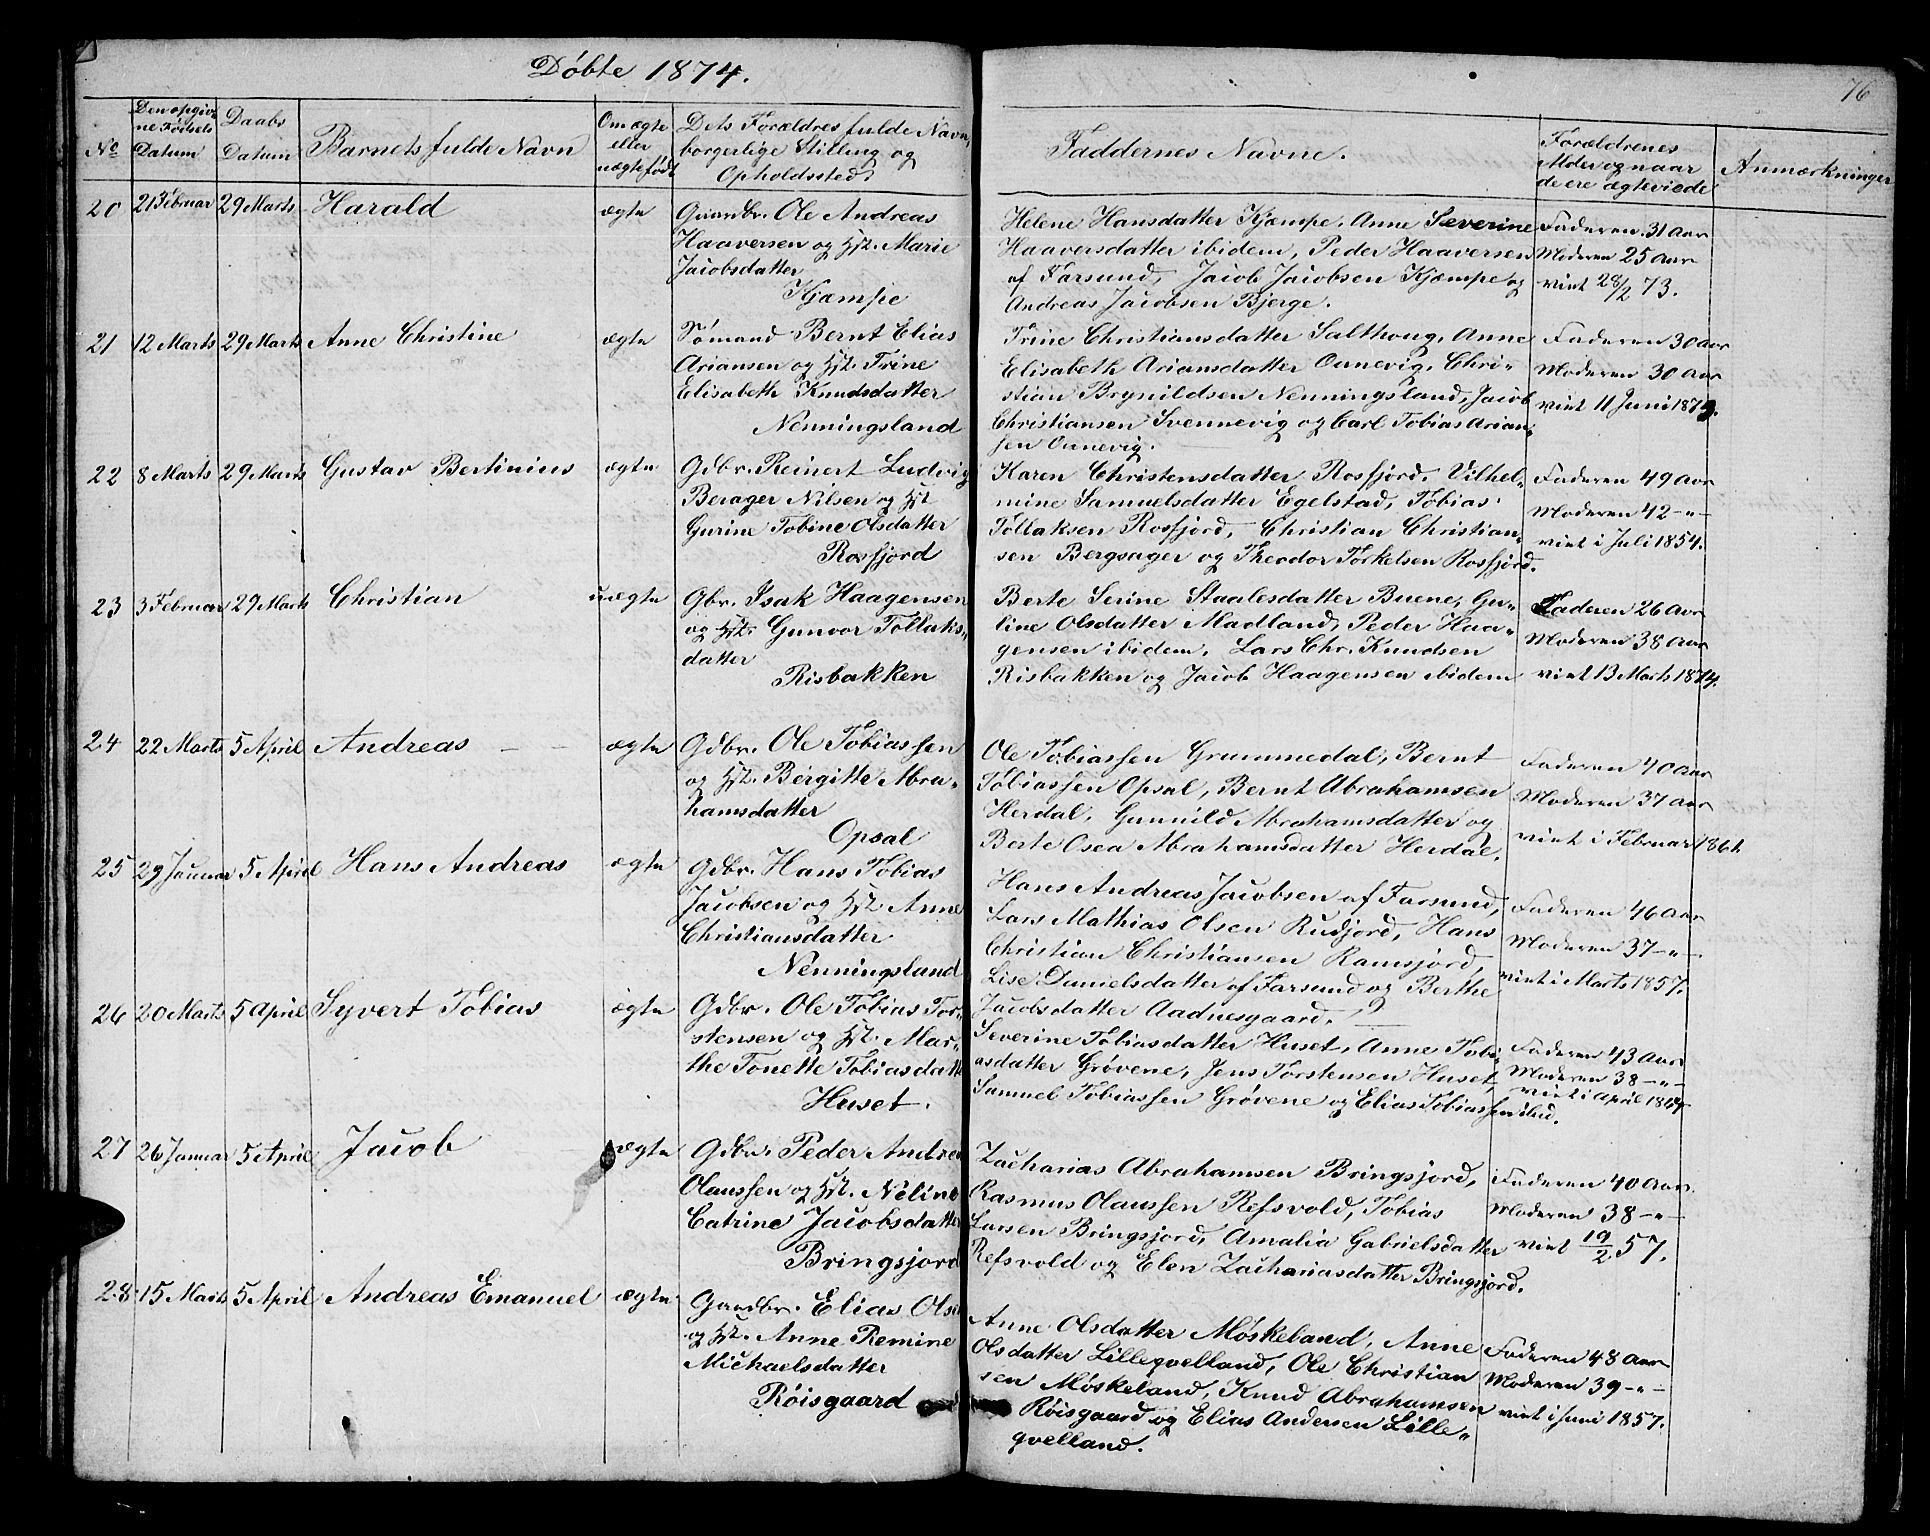 Döbte 1874.
76
No
Den opgivne Fødsels Datum
Daabs Datum
Barnets fulde Navn
Om ægte eller uægte født
Dets Forældres fulde Navn, borgerlige Stilling og Opholdssted.
Faddernes Navne.
Forældrenes Alder og naar de ere ægteviede
Anmærkninger
20 21 Februar 29 Marts Harald ægte
Gaardbr. Ole Andreas
Haaversen og Hst. Marie
Jacobsdatter
Kjæmpe
Helene Hansdatter Kjæmpe, Anne Severine
Haaversdatter ibidem, Peder Haaversen
af Farsund, Jacob Jacobsen Kjæmpe og
Andreas Jacobsen Bjerge.
Faderen 31 Aar
Moderen 25 Aar
viet 28/2 73.
21 12 Marts 29 Marts Anne Christine ægte
Sömand Bernt Elias
Ariansen og Hst. Trine
Elisabeth Knudsdatter
Nenningsland
Trine Christiansdatter Salthoug, Anne
Elisabeth Ariansdatter Ounevig, Chri-
stian Brynildsen Nenningsland, Jacob
Christiansen Svennevig og Carl Tobias Arian-
sen Ounevig.
Faderen 30 Aar
Moderen 30 Aar
viet 11 Juni
22 8 Marts 29 Marts Gustav Bertinius ægte
Gdbr. Reinert Ludvig
Berager Nilsen og Hst.
Gurine Tobine Olsdatter
Rosfjord
Karen Christensdatter Rosfjord, Vilhel-
mine Samuelsdatter Egelstad, Tobias
Tollaksen Rosfjord, Christian Christian-
sen Bergsager og Theodor Torkelsen Rosfjord.
Faderen 49 Aar
Moderen 42 -"-
viet i Juli 1854.
23 3 Februar 29 Marts Christian uægte
Gbr. Isak Haagensen
og Hst. Gunvor Tollaks-
datter
Risbakken
Berte Serine Staalesdatter Buene, Gu-
line Olsdatter Madland, Peder Haa-
gensen ibidem, Lars Chr. Knudsen
Risbakken og Jacob Haagensen ibidem
Faderen 26 Aar
Moderen 38 Aar
viet 13 Marts 1874.
24 22 Marts 5 April Andreas ægte
Gdbr. Ole Tobiassen
og Hst. Bergitte Abra-
hamsdatter
Opsal
Ole Tobiassen Grummedal, Bernt
Tobiassen Opsal, Bernt Abrahamsen
Herdal, Gunnild Abrahamsdatter og
Berte Osea Abrahamsdatter Herdal.
Faderen 40 Aar
Moderen 37 Aar
viet i Februar 1861.
25 29 Januar 5 April Hans Andreas ægte
Gdbr. Hans Tobias
Jacobsen og Hst. Anne
Christiansdatter
Nenningsland
Hans Andreas Jacobsen af Farsund,
Lars Mathias Olsen Rudjord, Hans
Christian Christiansen Ramsjord,
Lise Danielsdatter af Farsund og Berthe
Jacobsdatter Aadnesgaard.
Faderen 46 Aar
Moderen 37 -"-
viet i Marts 1857.
26 20 Marts 5 April Syvert Tobias ægte
Gdbr. Ole Tobias Tor-
stensen og Hst. Mar-
the Tonette Tobiasdatt
Huset.
Severine Tobiasdatter Huset, Anne Tobi-
asdatter Grövene, Jens Torstensen Huset,
Samuel Tobiassen Grövene og Elias Tobiassen ibid.
Faderen 43 Aar
Moderen 38 -"-
viet i April
27 26 Januar 5 April Jacob ægte
Gdbr. Peder Andrea
Olaussen og Hst. Neline
Catrine Jacobsdatter
Bringsjord
Zacharias Abrahamsen Bringsjord,
Rasmus Olaussen Refsvold, Tobias
Larsen Bringsjord, Amalia Gabrielsdatter
Refsvold og Elen Zachariasdatter Bringsjord.
Faderen 40 Aar
Moderen 38 -"-
viet 19/2 57.
28 15 Marts 5 April Andreas Emanuel ægte
Gaardbr. Elias Olsen
og Hst. Anne Remine
Michaelsdatter
Röisgaard
Anne Olsdatter Möskeland, Anne
Olsdatter Lilleqvelland, Ole Christian
sen Möskeland, Knud Abrahamsen
Röisgaard og Elias Andersen Lille-
qvelland.
Faderen 48 Aar
Moderen 39 -"-
viet i Juni 1857.